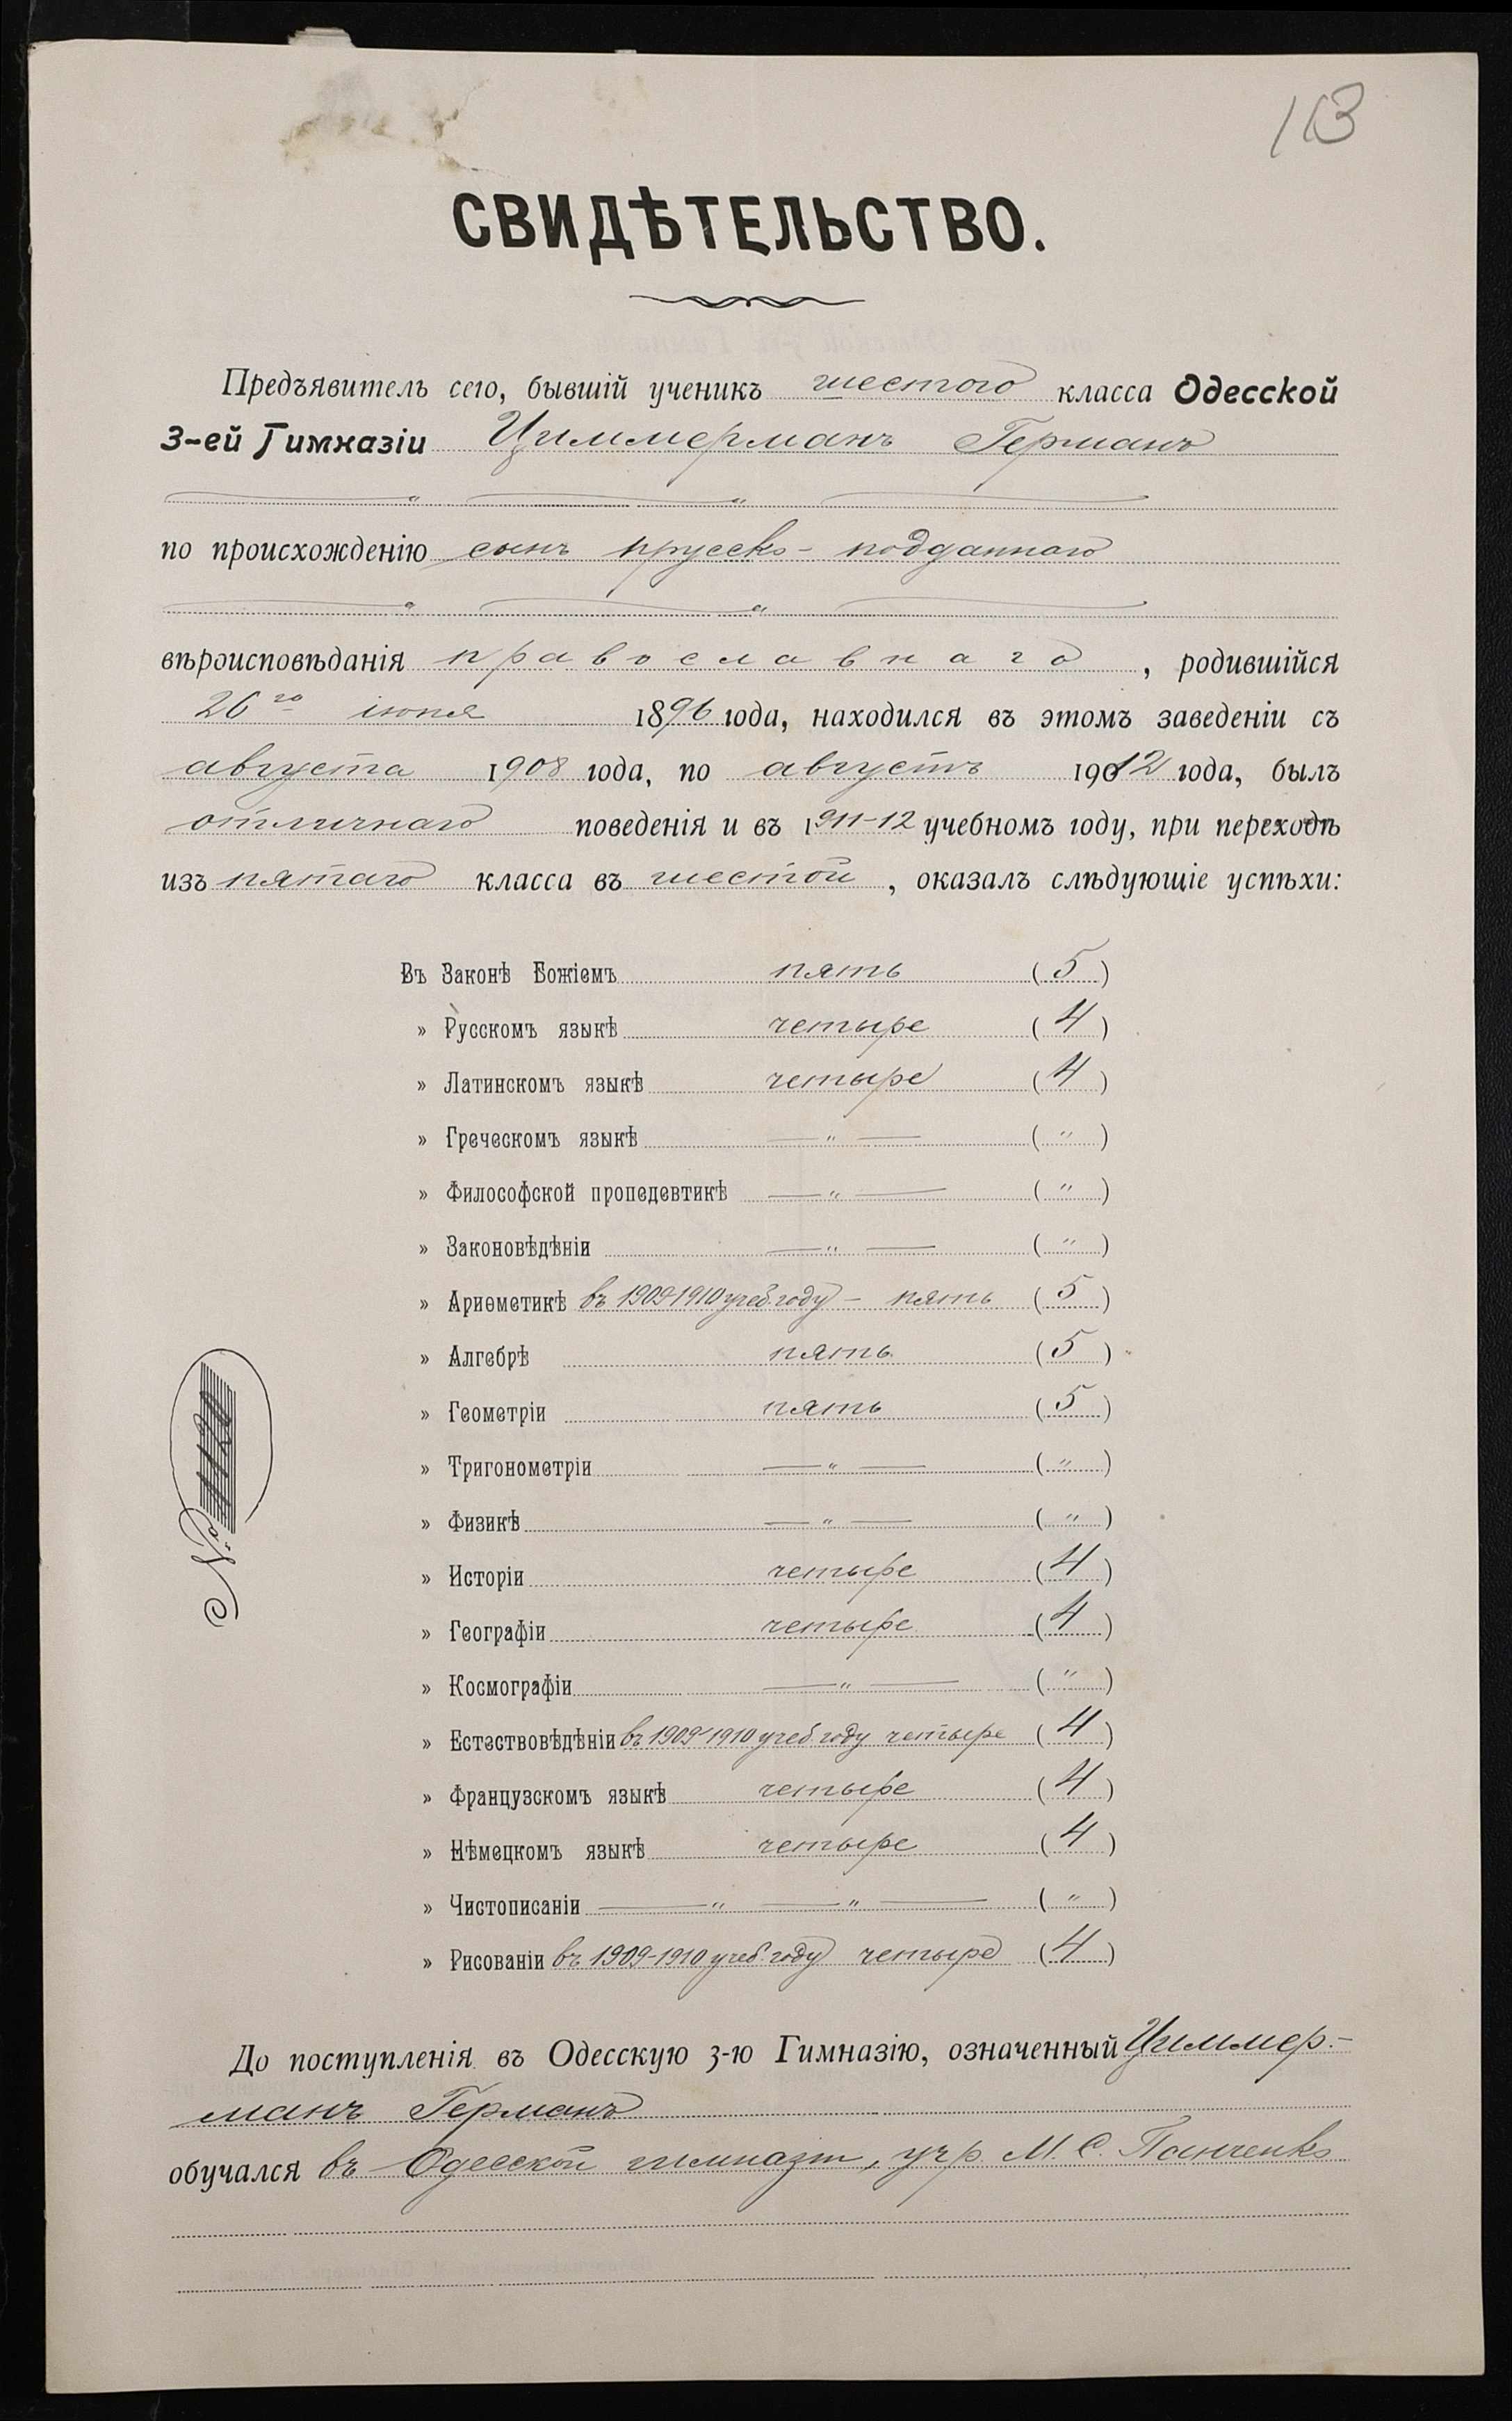 113
СВИДѢТЕЛЬСТВО.
Предъявитель сего, бывшій ученикъ шестого класса Одесской
3-ей Гимназіи Циммерманъ Германъ
по происхожденію сынъ прусско-подданнаго
вѣроисповѣданія православнаго, родившійся
26го іюня 1896 года, находился въ этомъ заведеніи съ
августа 1908 года, по августъ 1912 года, былъ
отличнаго поведенія и въ 1911-12 учебномъ году, при переходѣ
изъ пятаго класса въ шестой, оказалъ слѣдующіе успѣхи:
Въ Законѣ Божіемъ пять (5)
» Русскомъ языкѣ четыре (4)
» Латинскомъ языкѣ четыре (4)
» Греческомъ языкѣ — " — (")
» Философской пропедевтикѣ — " — (")
» Законовѣдѣніи — " — (")
» Ариѳметикѣ въ 1909-1910 учеб. году - пять (5)
» Алгебрѣ пять (5)
» Геометріи пять (5)
» Тригонометріи — " — (")
» Физикѣ — " — (")
» Исторіи четыре (4)
» Географіи четыре (4)
» Космографіи — " — (")
» Естествовѣдѣніи въ 1909-1910 учеб. году четыре (4)
» Французскомъ языкѣ четыре (4)
» Нѣмецкомъ языкѣ четыре (4)
» Чистописаніи — " — " — (")
» Рисованіи въ 1909-1910 учеб. году четыре (4)
№ 1120
До поступленія въ Одесскую 3-ю Гимназію, означенный Циммер-
манъ Германъ
обучался въ Одесской гимназіи, учр. М. С. Панченко